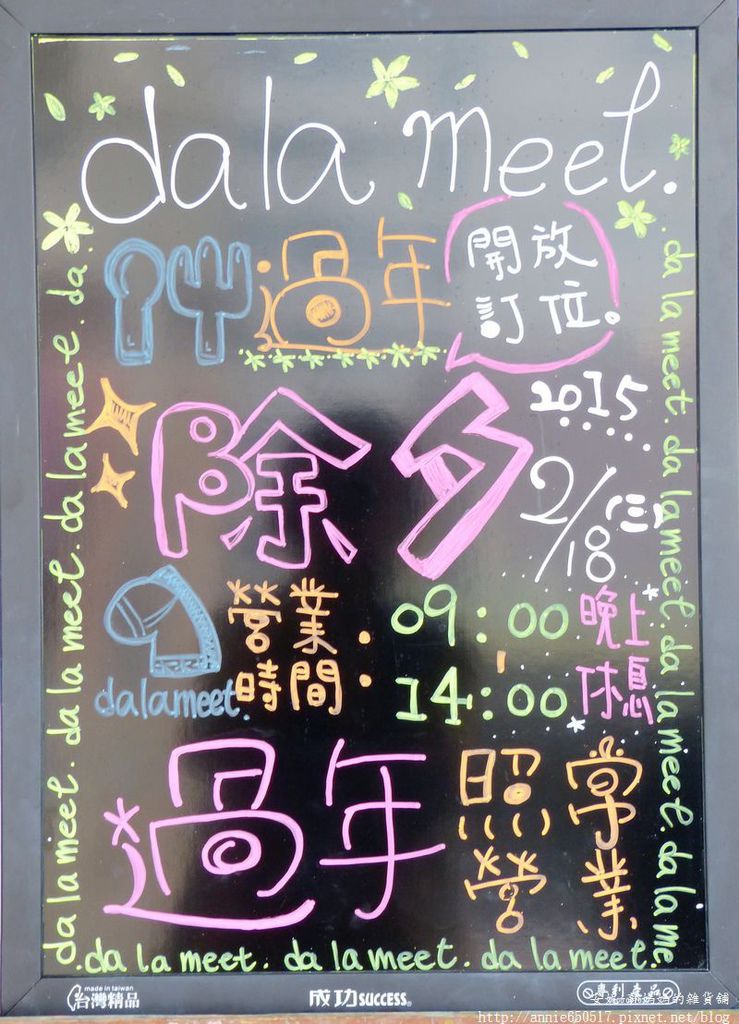 dala meet.
過年
開放
訂位。
2015
除夕
2/18 (三)
營業
時間:
09:00
14:00
晚上
休息
dalameet.
過年
照常
營業
da la meet. da la meet. da la meet. da la meet. da la meet. da.
da la meet. da la meet. da la meet. da la meet. da la me
da la meet. da la meet. da la meet.
made in taiwan
台灣精品
成功 SUCCESS®
專利產品
的雜貨舖
http://annie650517.pixnet.net/blog